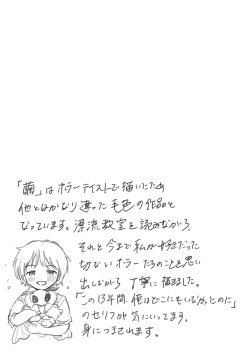 「繭」はホラーテイストで描いたため
他とはかなり違った毛色の作品と
なっています。漂流教室を読みながら、
それと今まで私が好きだった
切ないホラーたちのことを思い
出しながら丁寧に描きました。
「この13年間 俺はどこにもいなかったのだ」
のセリフが気にいってます。
身につまされます。